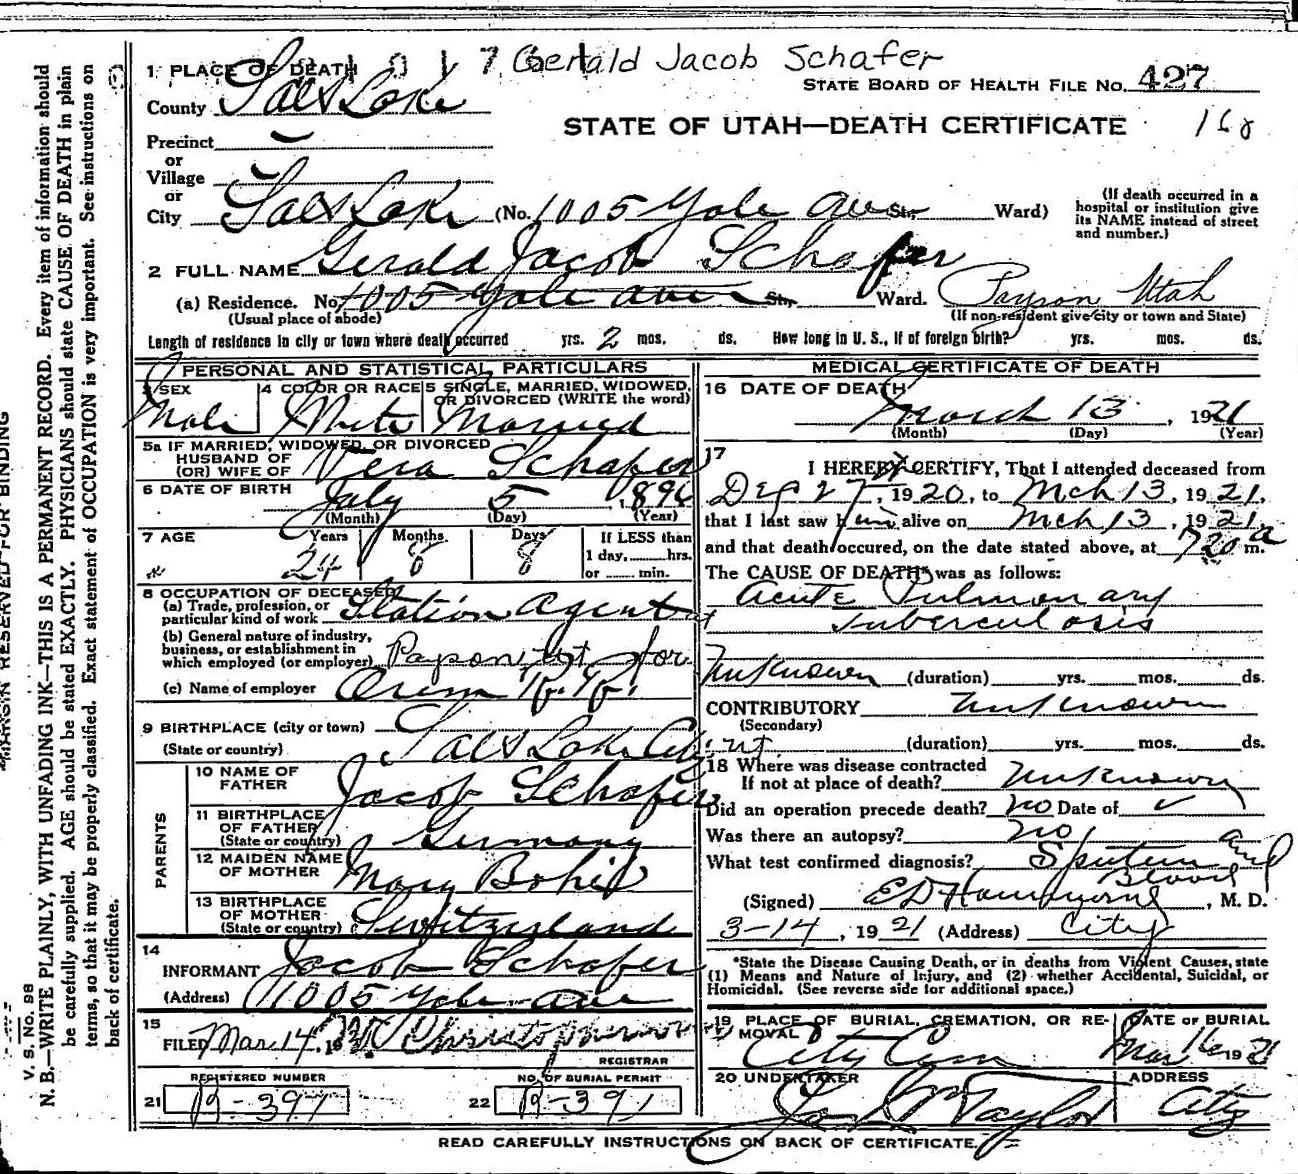 Gerald Jacob Schafer
1 PLACE OF DEATH
STATE BOARD OF HEALTH FILE No. 427
County Salt Lake
STATE OF UTAH—DEATH CERTIFICATE
168
Precinct
or
Village
or
City Salt Lake (No. 1005 Yale Ave St., Ward)
(If death occurred in a hospital or institution give its NAME instead of street and number.)
2 FULL NAME Gerald Jacob Schafer
(a) Residence. No. 1005 Yale Ave St., Ward. Payson Utah
(Usual place of abode) (If non-resident give city or town and State)
Length of residence in city or town where death occurred yrs. 2 mos. ds. How long in U. S., if of foreign birth? yrs. mos. ds.
PERSONAL AND STATISTICAL PARTICULARS
3 SEX 4 COLOR OR RACE 5 SINGLE, MARRIED, WIDOWED, OR DIVORCED (WRITE the word)
Male White Married
5a IF MARRIED, WIDOWED, OR DIVORCED
HUSBAND OF
(OR) WIFE OF Vera Schafer
6 DATE OF BIRTH July 5, 1896
(Month) (Day) (Year)
7 AGE Years Months. Days If LESS than
24 8 8 1 day, hrs.
or min.
8 OCCUPATION OF DECEASED
(a) Trade, profession, or particular kind of work Station Agent at
(b) General nature of industry, business, or establishment in which employed (or employer) Payson Ut for
(c) Name of employer Orem R. R.
9 BIRTHPLACE (city or town) Salt Lake City
(State or country) Ut.
PARENTS
10 NAME OF FATHER Jacob Schafer
11 BIRTHPLACE OF FATHER (State or country) Germany
12 MAIDEN NAME OF MOTHER Mary
13 BIRTHPLACE OF MOTHER (State or country) Switzerland
14
INFORMANT Jacob Schafer
(Address) 1005 Yale Ave
15
FILED Mar. 14, 19
REGISTRAR
REGISTERED NUMBER NO. OF BURIAL PERMIT
21 B-397 22 B-391
MEDICAL CERTIFICATE OF DEATH
16 DATE OF DEATH
March 13, 1921
(Month) (Day) (Year)
17
I HEREBY CERTIFY, That I attended deceased from
Sep 27, 1920, to Mch 13, 1921,
that I last saw him alive on Mch 13, 1921,
and that death occured, on the date stated above, at 720 a m.
The CAUSE OF DEATH* was as follows:
Acute Pulmonary
Tuberculosis
Unknown (duration) yrs. mos. ds.
CONTRIBUTORY Unknown
(Secondary)
(duration) yrs. mos. ds.
18 Where was disease contracted
If not at place of death? Unknown
Did an operation precede death? no Date of
Was there an autopsy? no
What test confirmed diagnosis? Sputum and
Blood
(Signed) , M. D.
3-14, 1921 (Address) City
*State the Disease Causing Death, or in deaths from Violent Causes, state
(1) Means and Nature of Injury, and (2) whether Accidental, Suicidal, or
Homicidal. (See reverse side for additional space.)
19 PLACE OF BURIAL, CREMATION, OR REMOVAL DATE OF BURIAL
City Cem Mar 16 1921
20 UNDERTAKER ADDRESS
Taylor City
READ CAREFULLY INSTRUCTIONS ON BACK OF CERTIFICATE.
MARGIN RESERVED FOR BINDING
V. S. No. 98
N. B.—WRITE PLAINLY, WITH UNFADING INK—THIS IS A PERMANENT RECORD. Every item of information should
be carefully supplied. AGE should be stated EXACTLY. PHYSICIANS should state CAUSE OF DEATH in plain
terms, so that it may be properly classified. Exact statement of OCCUPATION is very important. See instructions on
back of certificate.